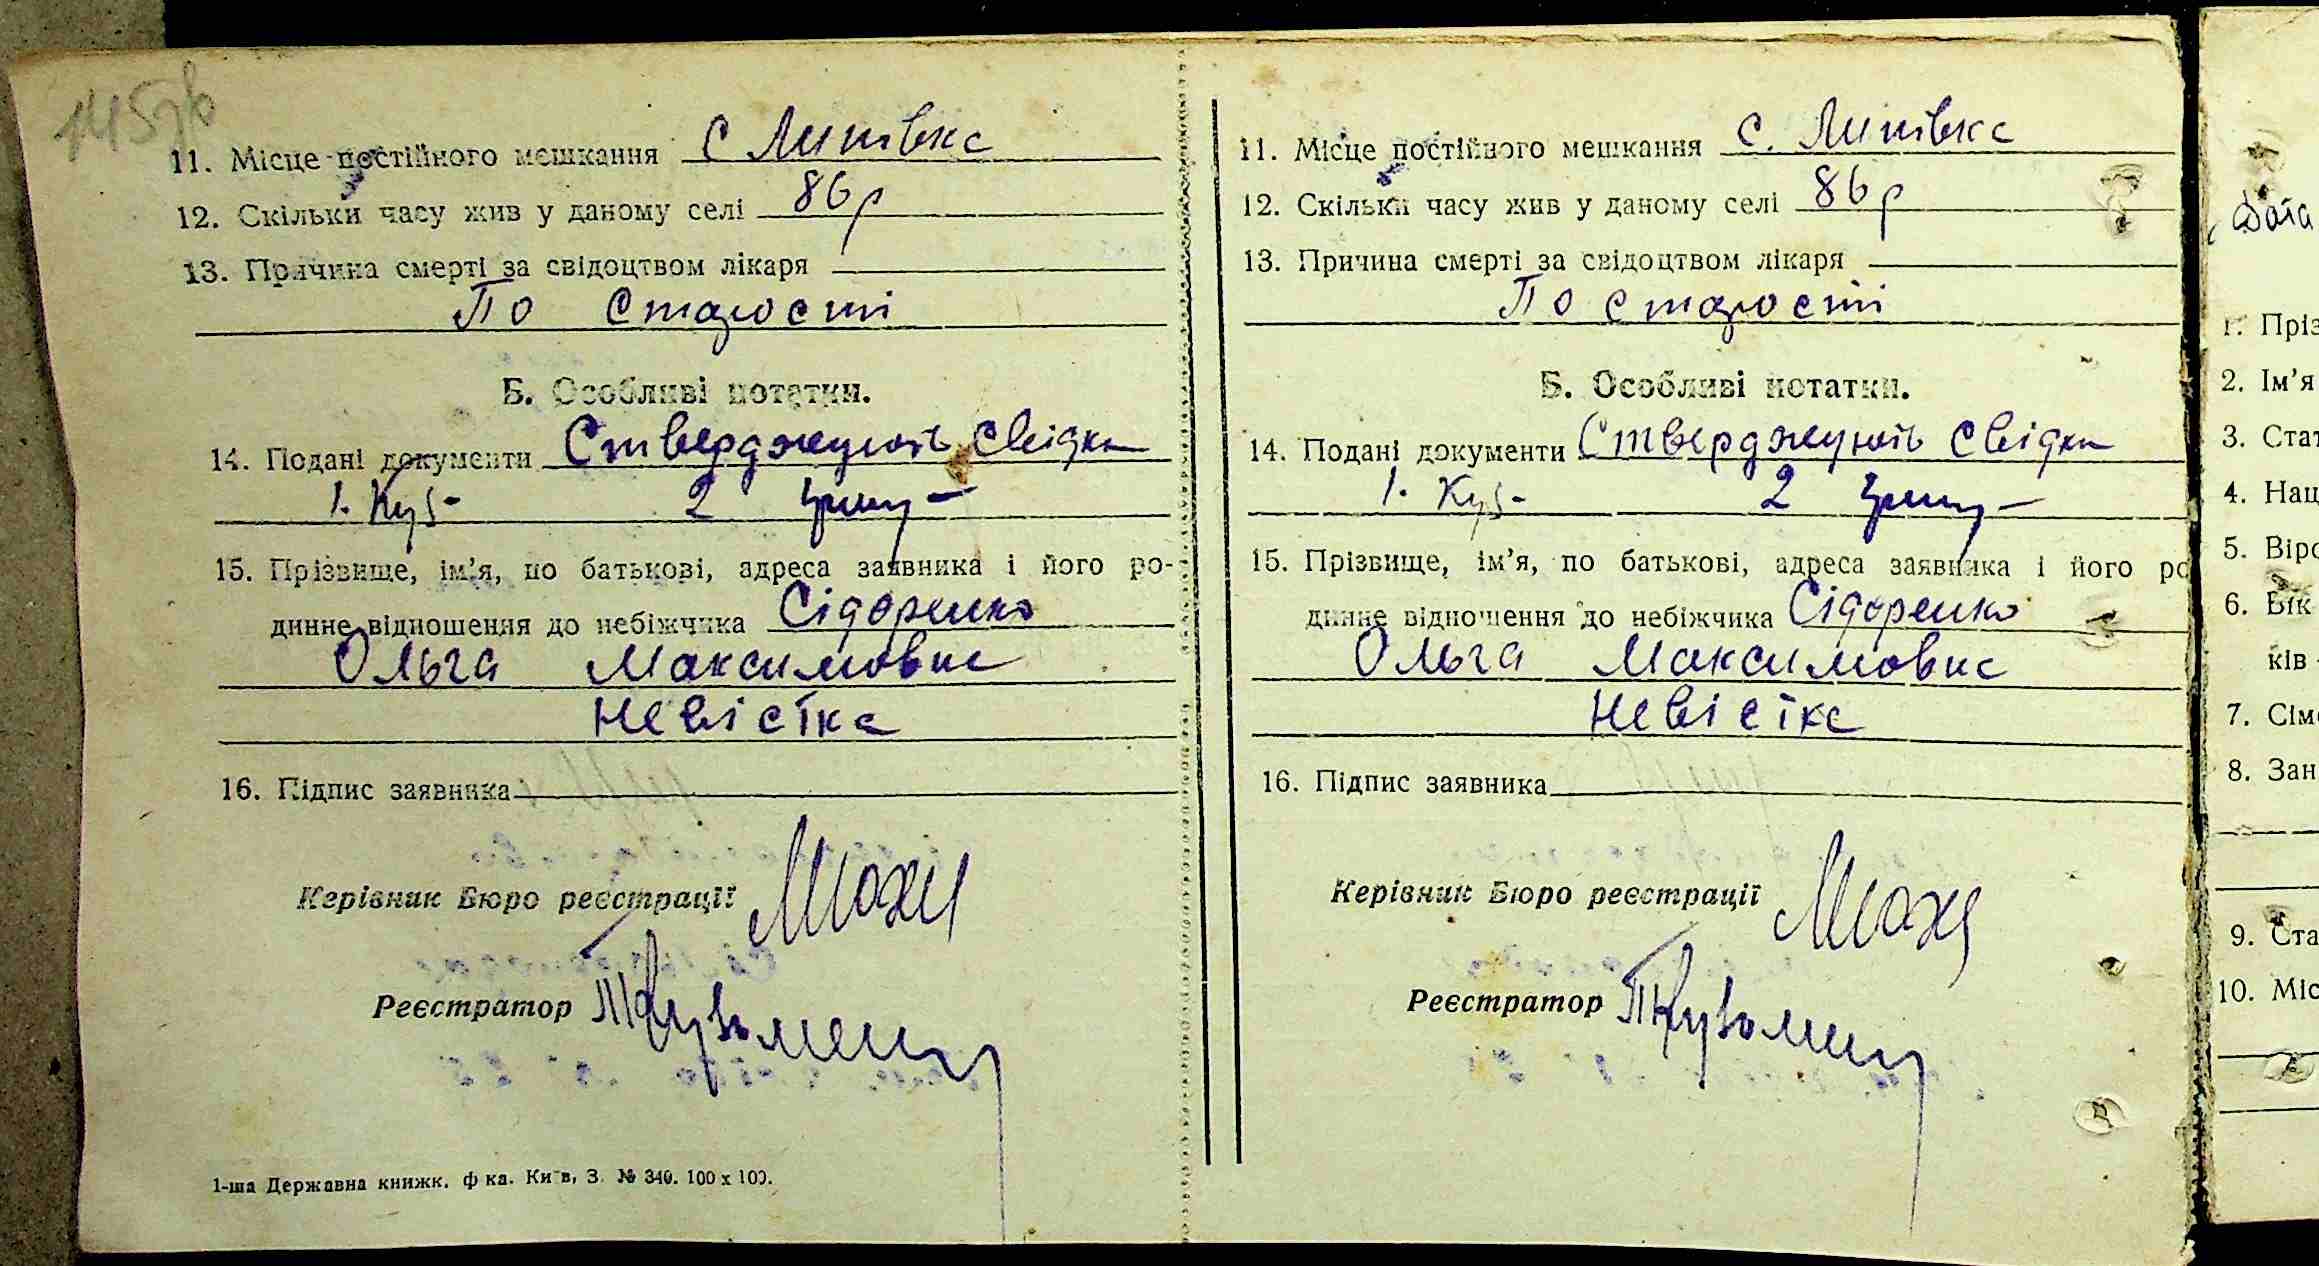 145зв
11. Місце постійного мешкання с Липівка
12. Скільки часу жив у даному селі 86 р
13. Причина смерті за свідоцтвом лікаря
По старости
Б. Особливі нотатки.
14. Подані документи Стверджують свідки
1. Куз- 2
15. Прізвище, ім'я, по батькові, адреса заявника і його ро-
динне відношення до небіжчика Сідоренко
Ольга Максимовна
Невістка
16. Підпис заявника
Керівник Бюро реєстрації
Реєстратор
1-ша Державна книжк. ф ка. Київ, З. № 340. 100 х 100.
11. Місце постійного мешкання с. Липівка
12. Скільки часу жив у даному селі 86 р
13. Причина смерті за свідоцтвом лікаря
По старости
Б. Особливі нотатки.
14. Подані документи Стверджують свідки
1. Куз- 2
15. Прізвище, ім'я, по батькові, адреса заявника і його ро
динне відношення до небіжчика Сідоренко
Ольга Максимовна
Невістка
16. Підпис заявника
Керівник Бюро реєстрації
Реєстратор
Дата
1. Пріз
2. Ім'я
3. Стат
4. Нац
5. Віро
6. Вік
ків
7. Сім
8. Зан
9. Ста
10. Міс